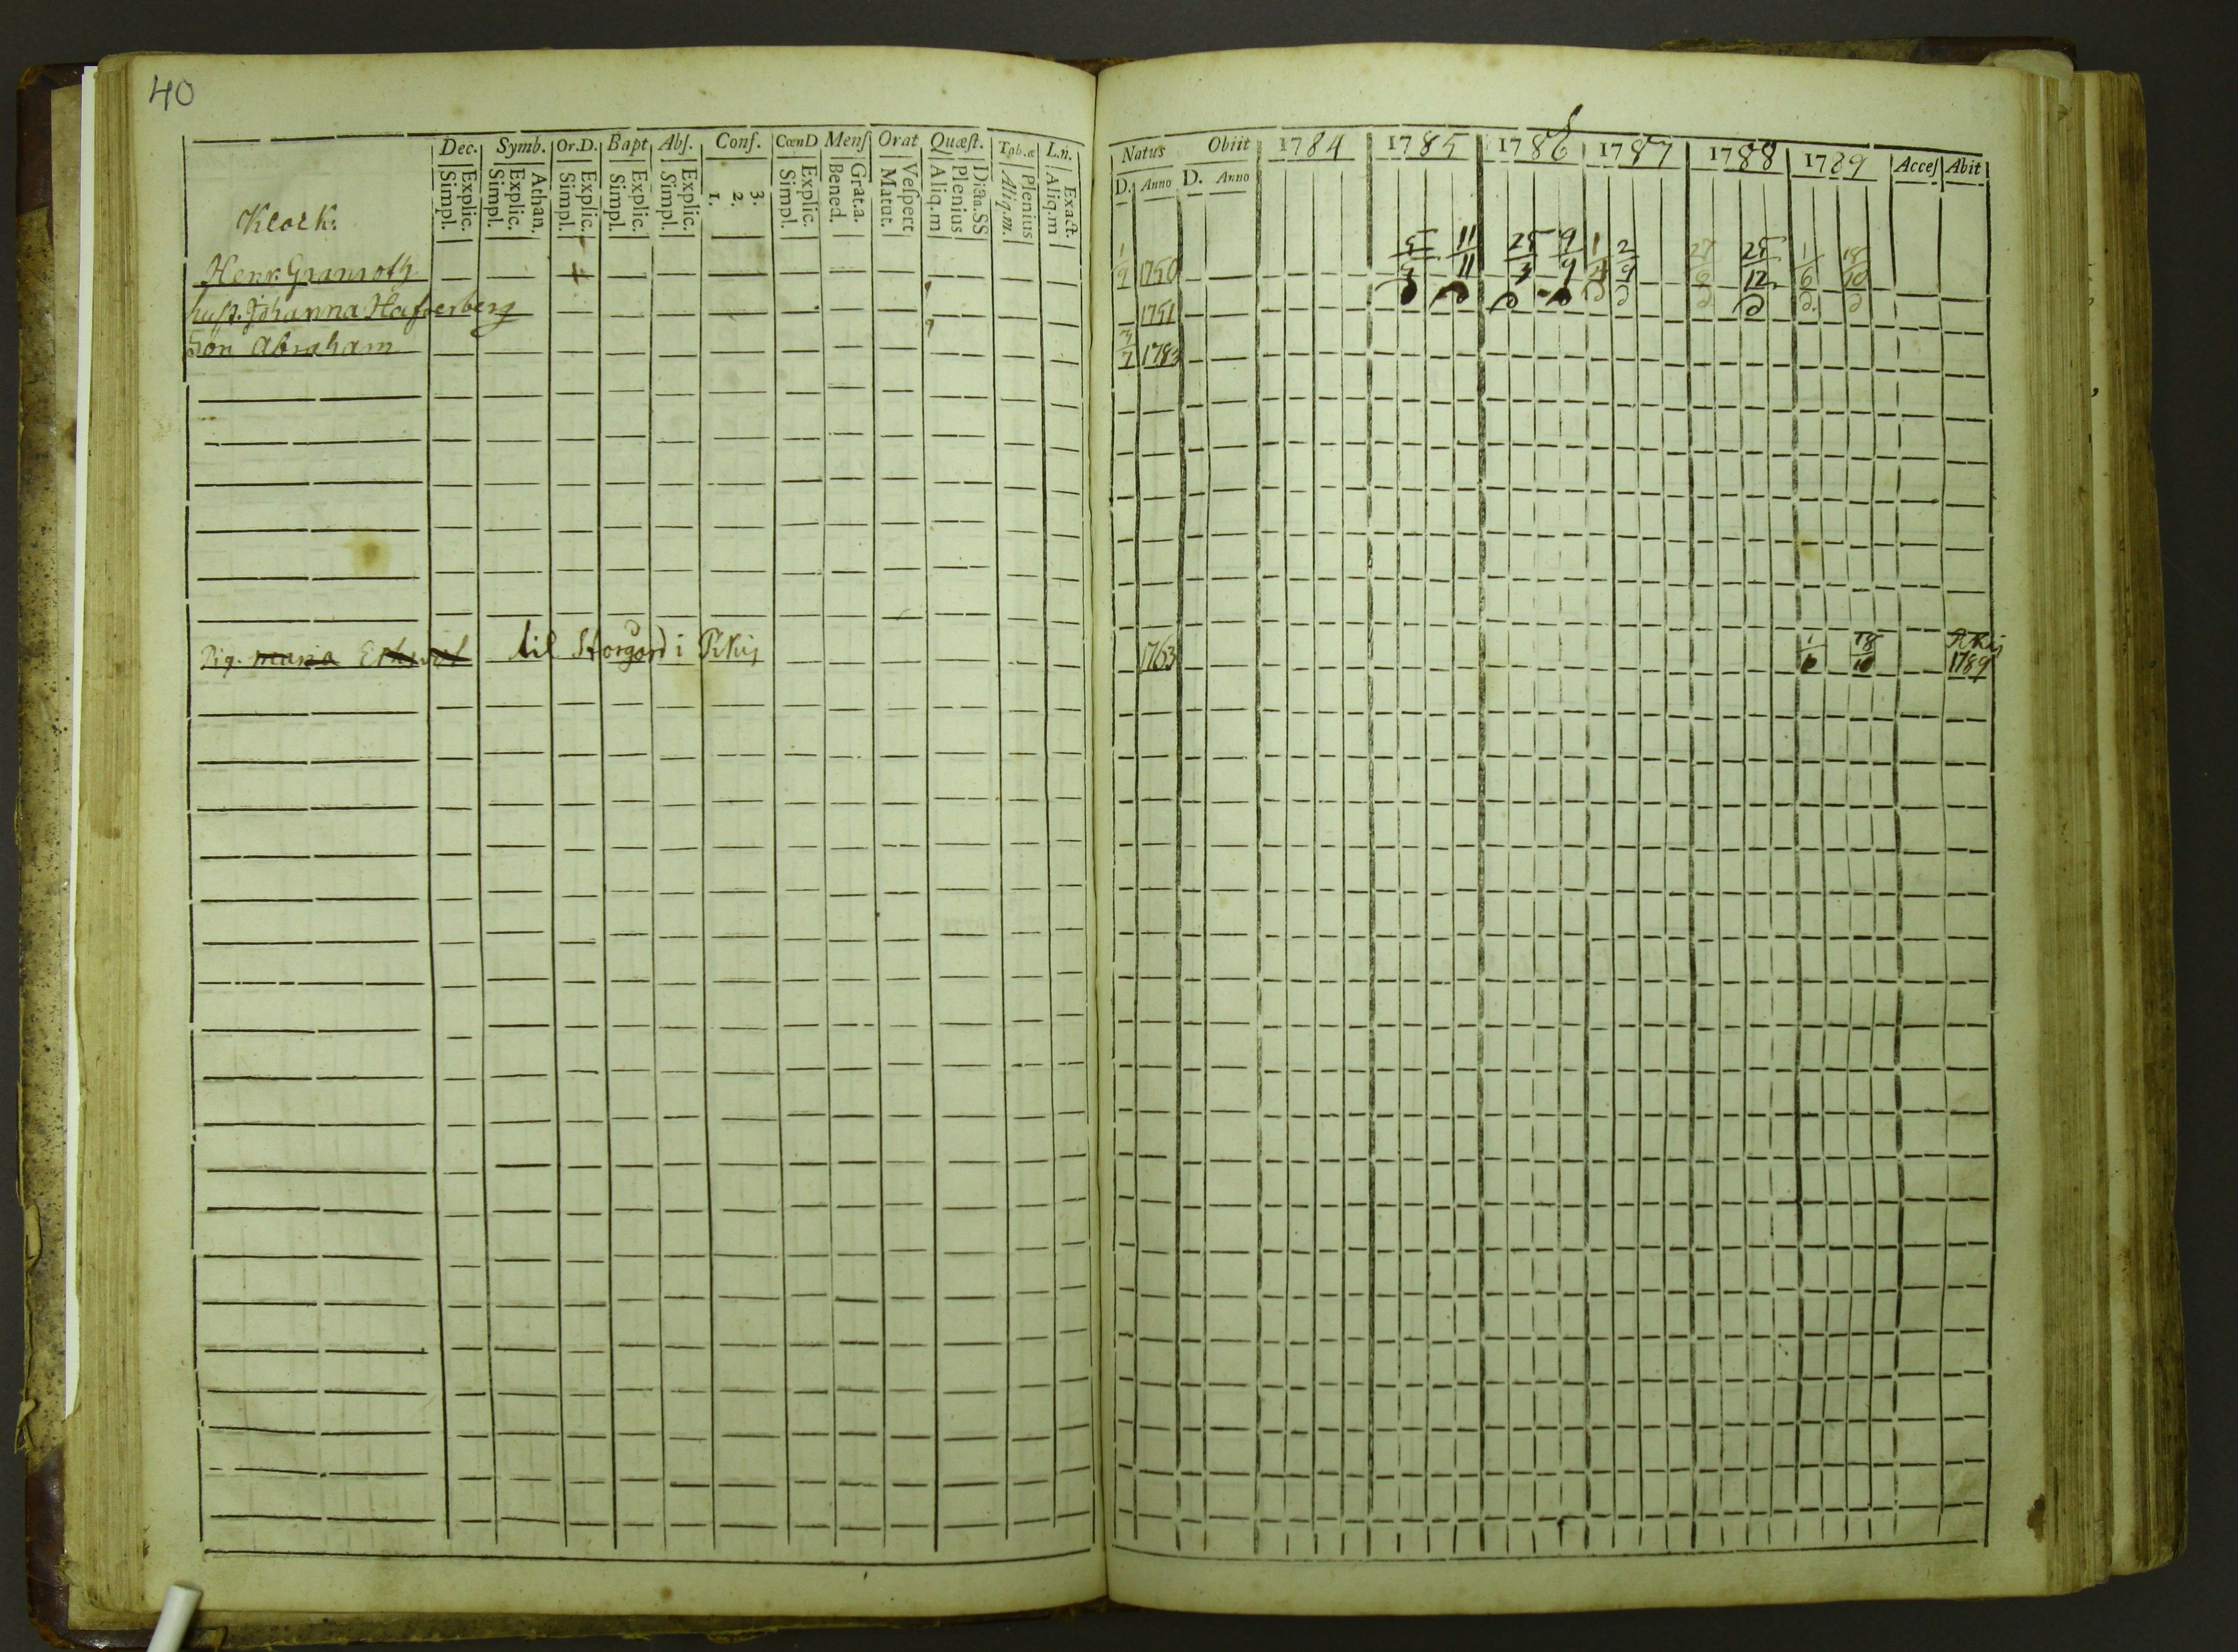 40
Dec. Symb. Or.D. Bapt Abſ. Conf. CœnD Menſ Orat Quæſt. Tab.æ L.n.
Explic. Simpl. Athan. Explic. Simpl. Explic. Simpl. Explic. Simpl. Explic. Simpl. 3. 2. 1. Explic. Simpl. Grat.a. Bened. Veſpert Matut. Dicta.SS Plenius Aliq.m Plenius Aliq.m. Exact. Aliq.m
Klock.
Henr. Granroth
huſt. Johanna Hafverberg
Son Abraham
Pig. maria til Storgård i
Natus Obiit 1784 1785 1786 1787 1788 1789 Acceſ Abit
D. Anno D. Anno
1/9 1750 5/3 11/11 25/3 9/9 1/4 2/9 27/8 25/12 1/6 18/10
1751
7/7 1783
1763 1/6 18/10
1789